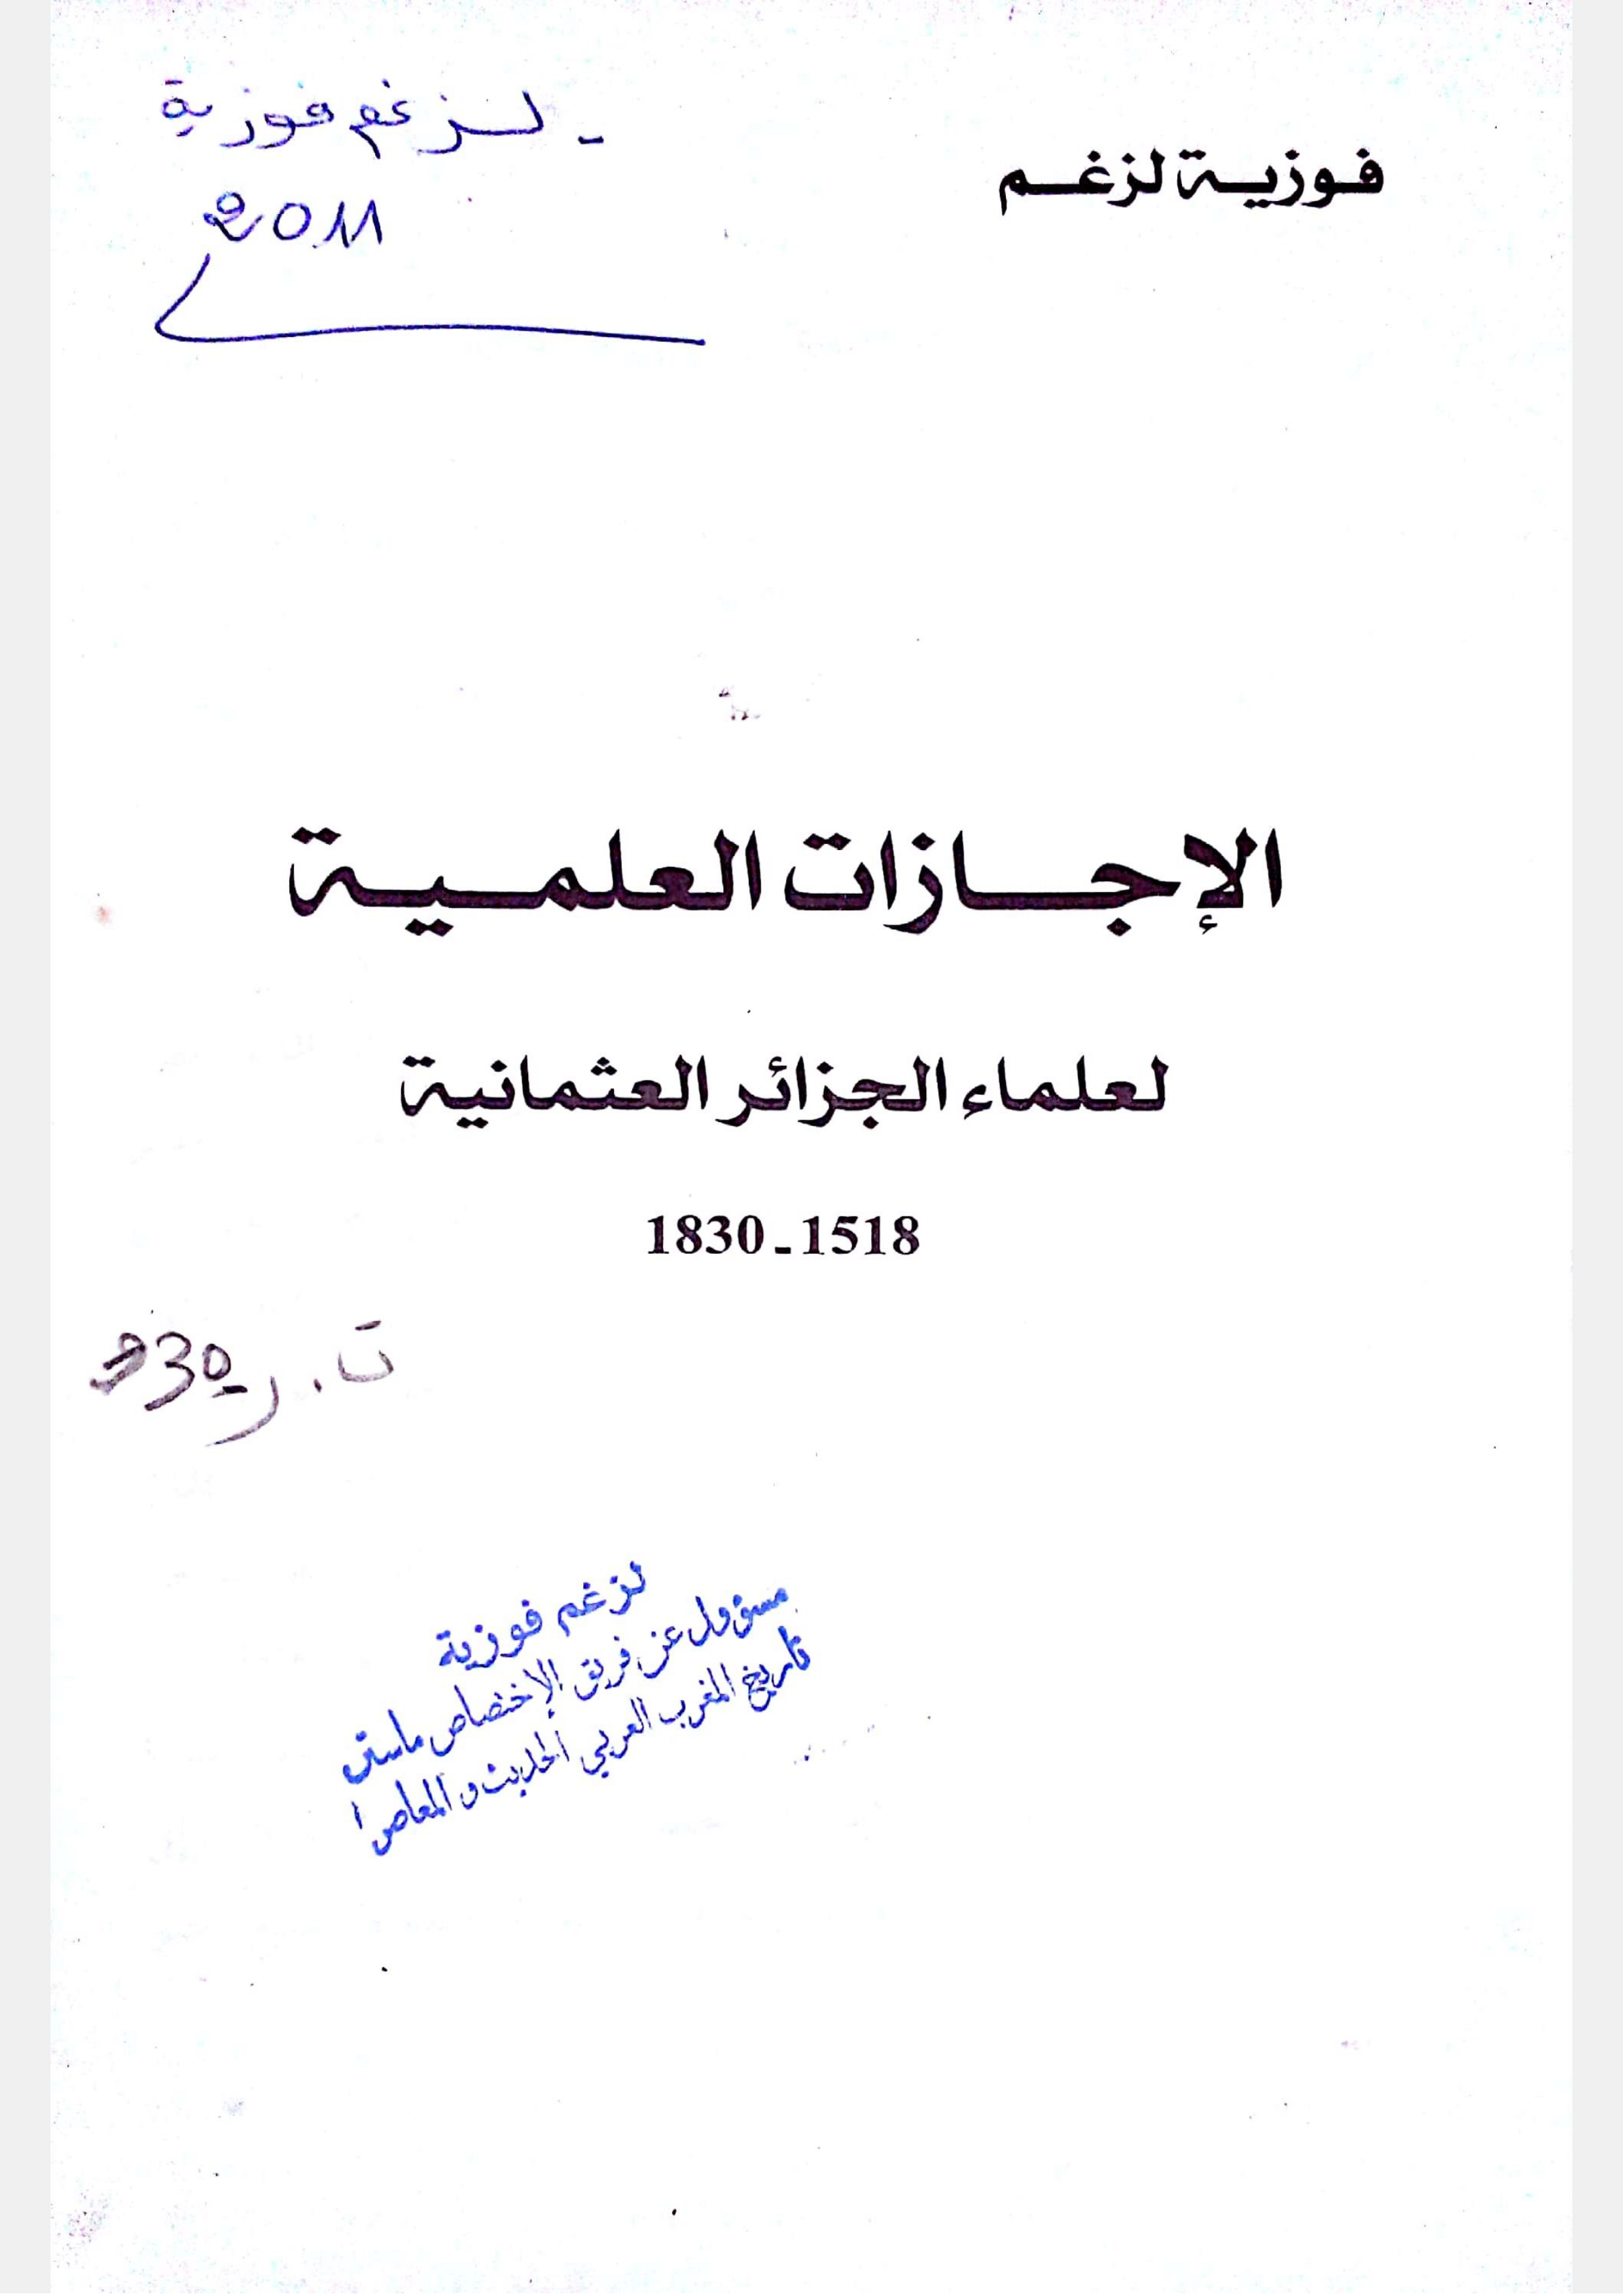 فوزية لزغم
ـ لزغم فوزية
2011
الإجازات العلمية
لعلماء الجزائر العثمانية
1830 ـ 1518
ت . ر 930
لزغم فوزية
مسؤول عن فريق الإختصاص ماستر
تاريخ المغرب العربي الحديث و المعاصر